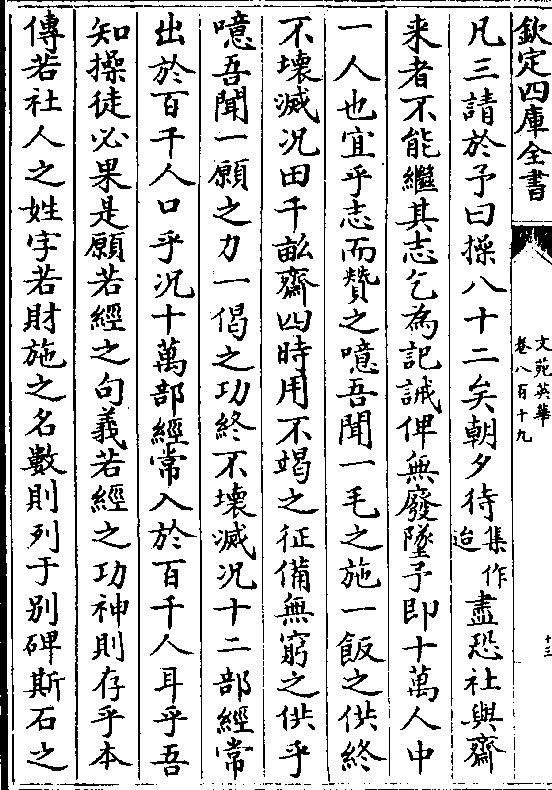 欽定四庫全書
文苑英華
卷八百十九
十三
凡三請於予曰操八十二矣朝夕待集作迨盡恐社與齋
来者不能繼其志乞為記誡俾無廢墜予即十萬人中
一人也宜乎志而贊之噫吾聞一毛之施一飯之供終
不壞滅况田千畝齋四時用不竭之征備無窮之供乎
噫吾聞一願之力一偈之功終不壞滅况十二部經常
出於百千人口乎况十萬部經常入於百千人耳乎吾
知操徒必果是願若經之句義若經之功神則存乎本
傳若社人之姓字若財施之名數則列于别碑斯石之